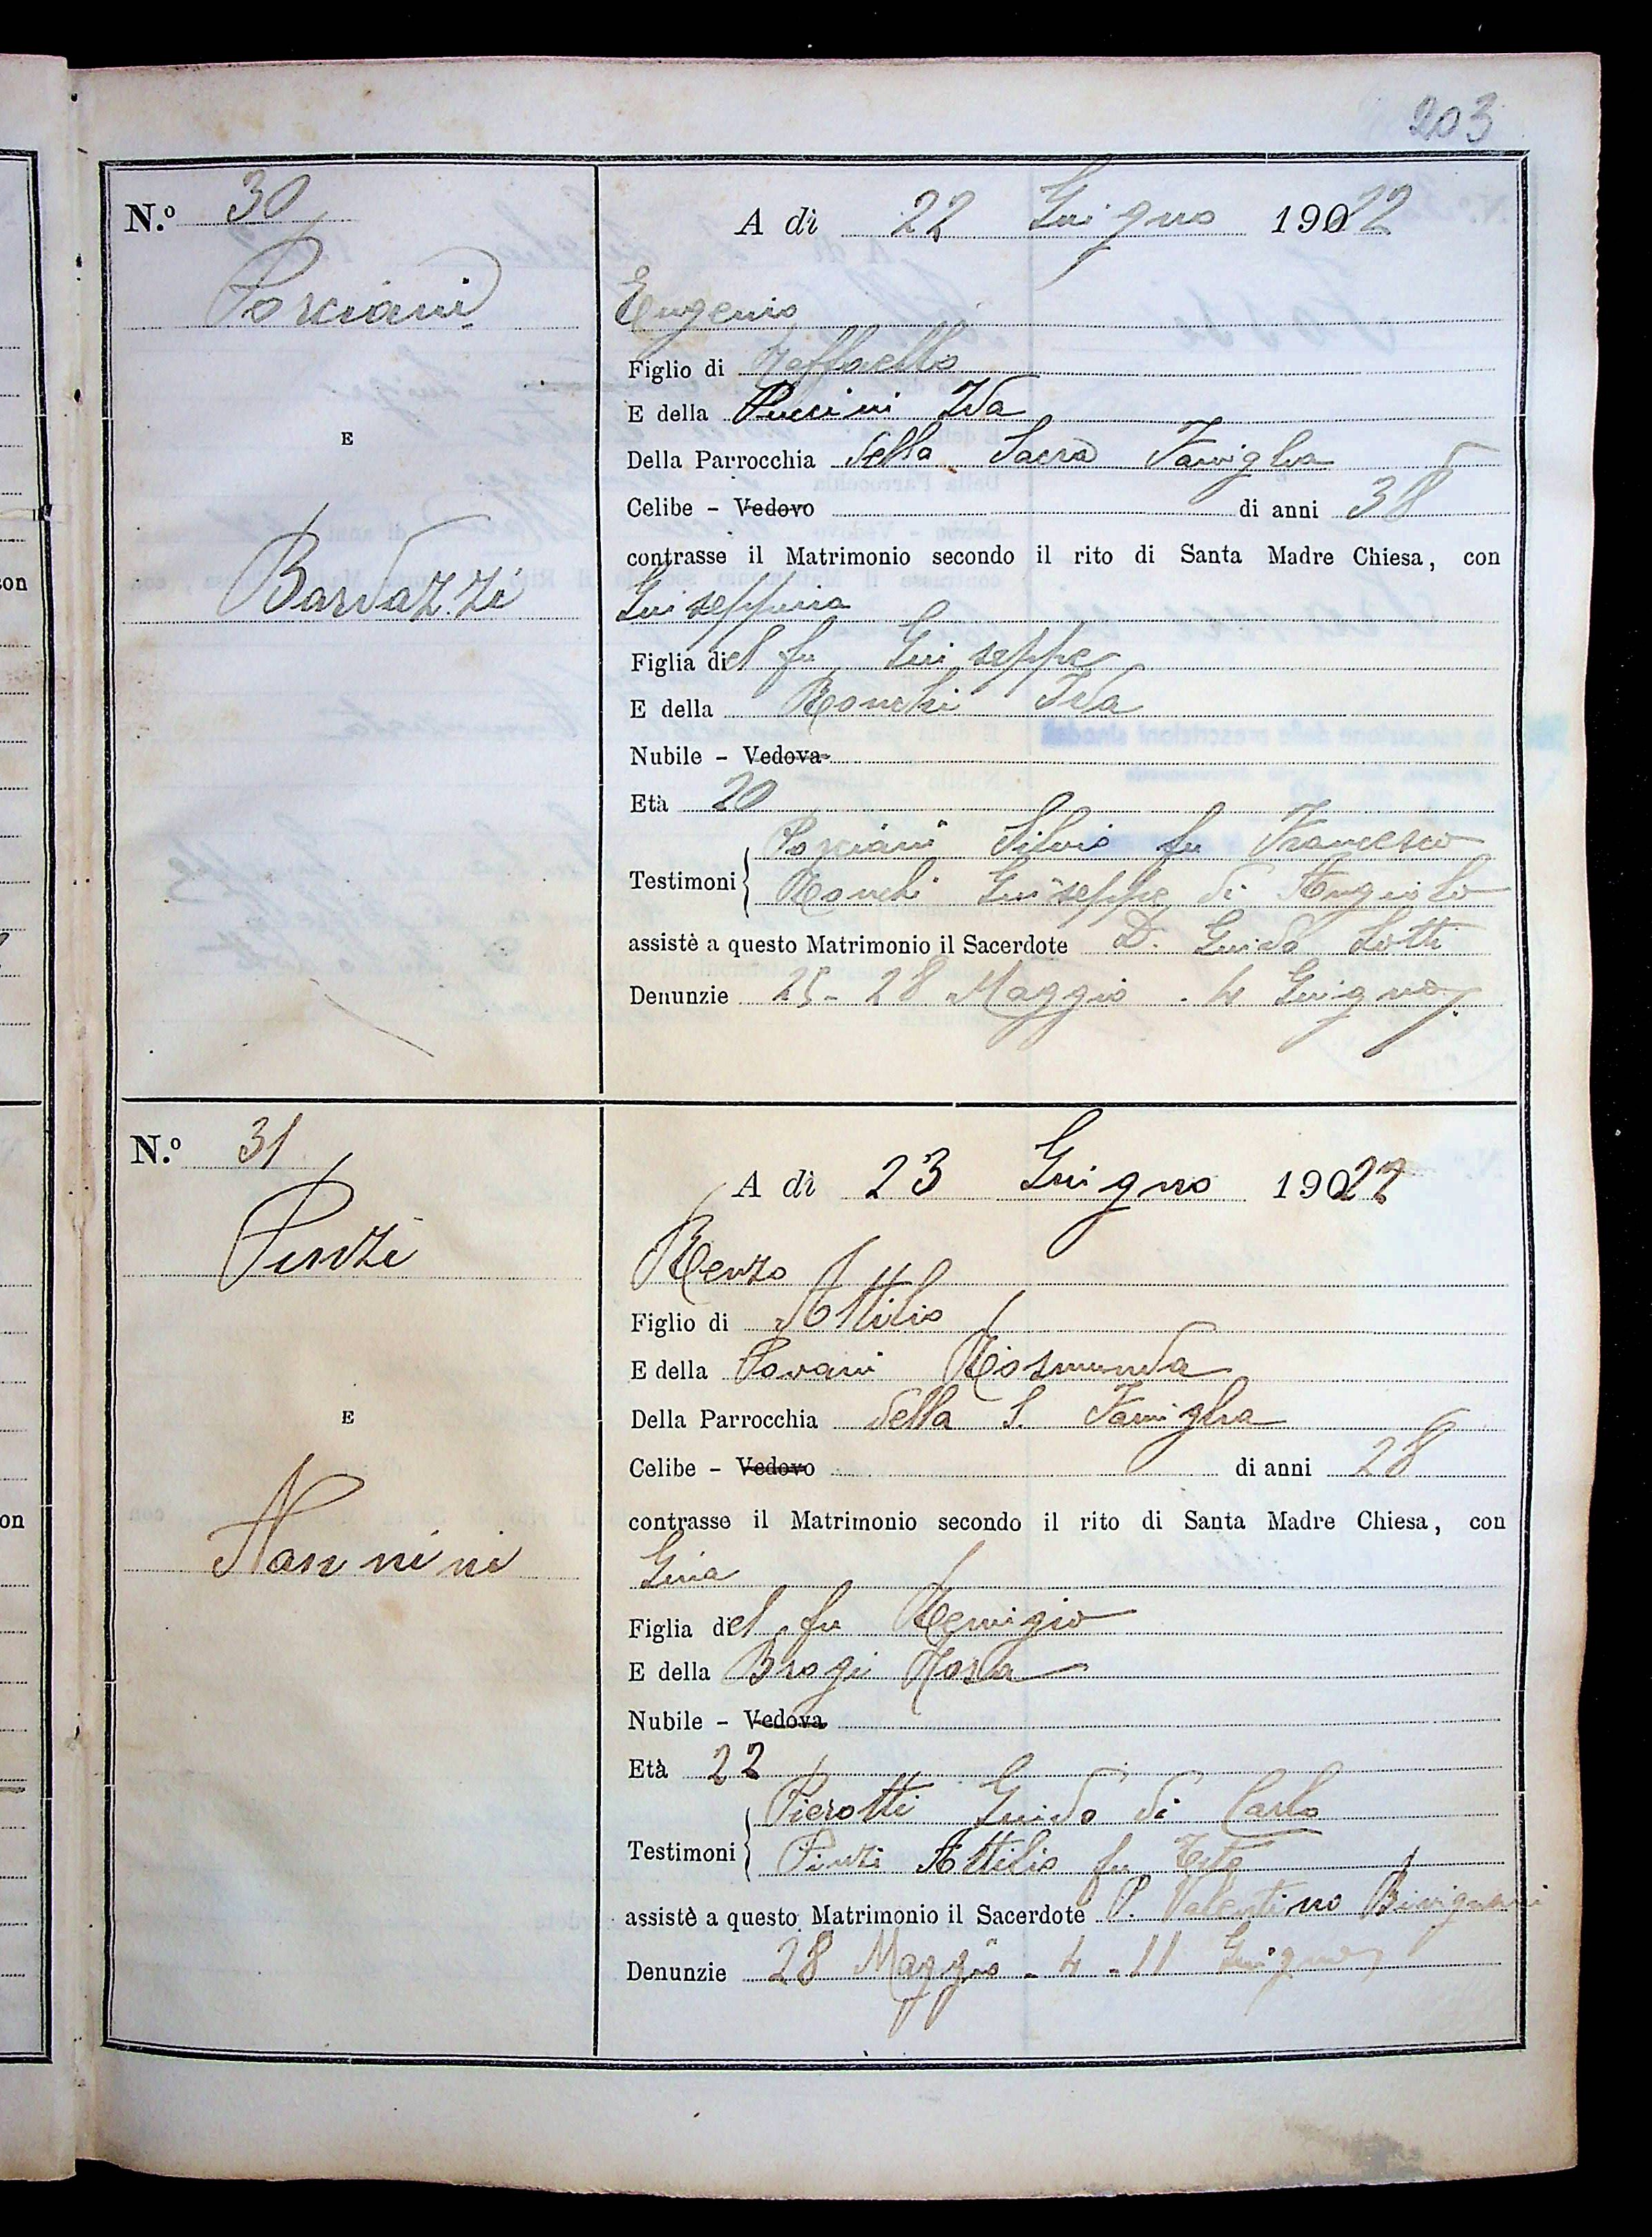 203
N.º 30
Porciani
E
Bardazzi
A dì 22 Giugno 1922
Eugenio
Figlio di Raffaello
E della Puccini Ida
Della Parrocchia della Sacra Famiglia
Celibe - Vedovo di anni 38
contrasse il Matrimonio secondo il rito di Santa Madre Chiesa, con
Giuseppina
Figlia del fu Giuseppe
E della Ronchi Ida
Nubile - Vedova
Età 20
Porciani Silvio fu Francesco
Testimoni
Ronchi Giuseppe di Angiolo
assistè a questo Matrimonio il Sacerdote D. Guido Lotti
Denunzie 25 - 28 Maggio - 4 Giugno
N.º 31
Pinzi
E
Nannini
A dì 23 Giugno 1922
Renzo
Figlio di Attilio
E della Rosmunda
Della Parrocchia della S. Famiglia
Celibe - Vedovo di anni 28
contrasse il Matrimonio secondo il rito di Santa Madre Chiesa, con
Gina
Figlia del fu Remigio
E della Brogi Rosa
Nubile - Vedova
Età 22
Pierotti Guido di Carlo
Testimoni
Pinzi Attilio fu Tito
assistè a questo Matrimonio il Sacerdote P. Valentino
Denunzie 28 Maggio - 4 - 11 Giugno
con
on